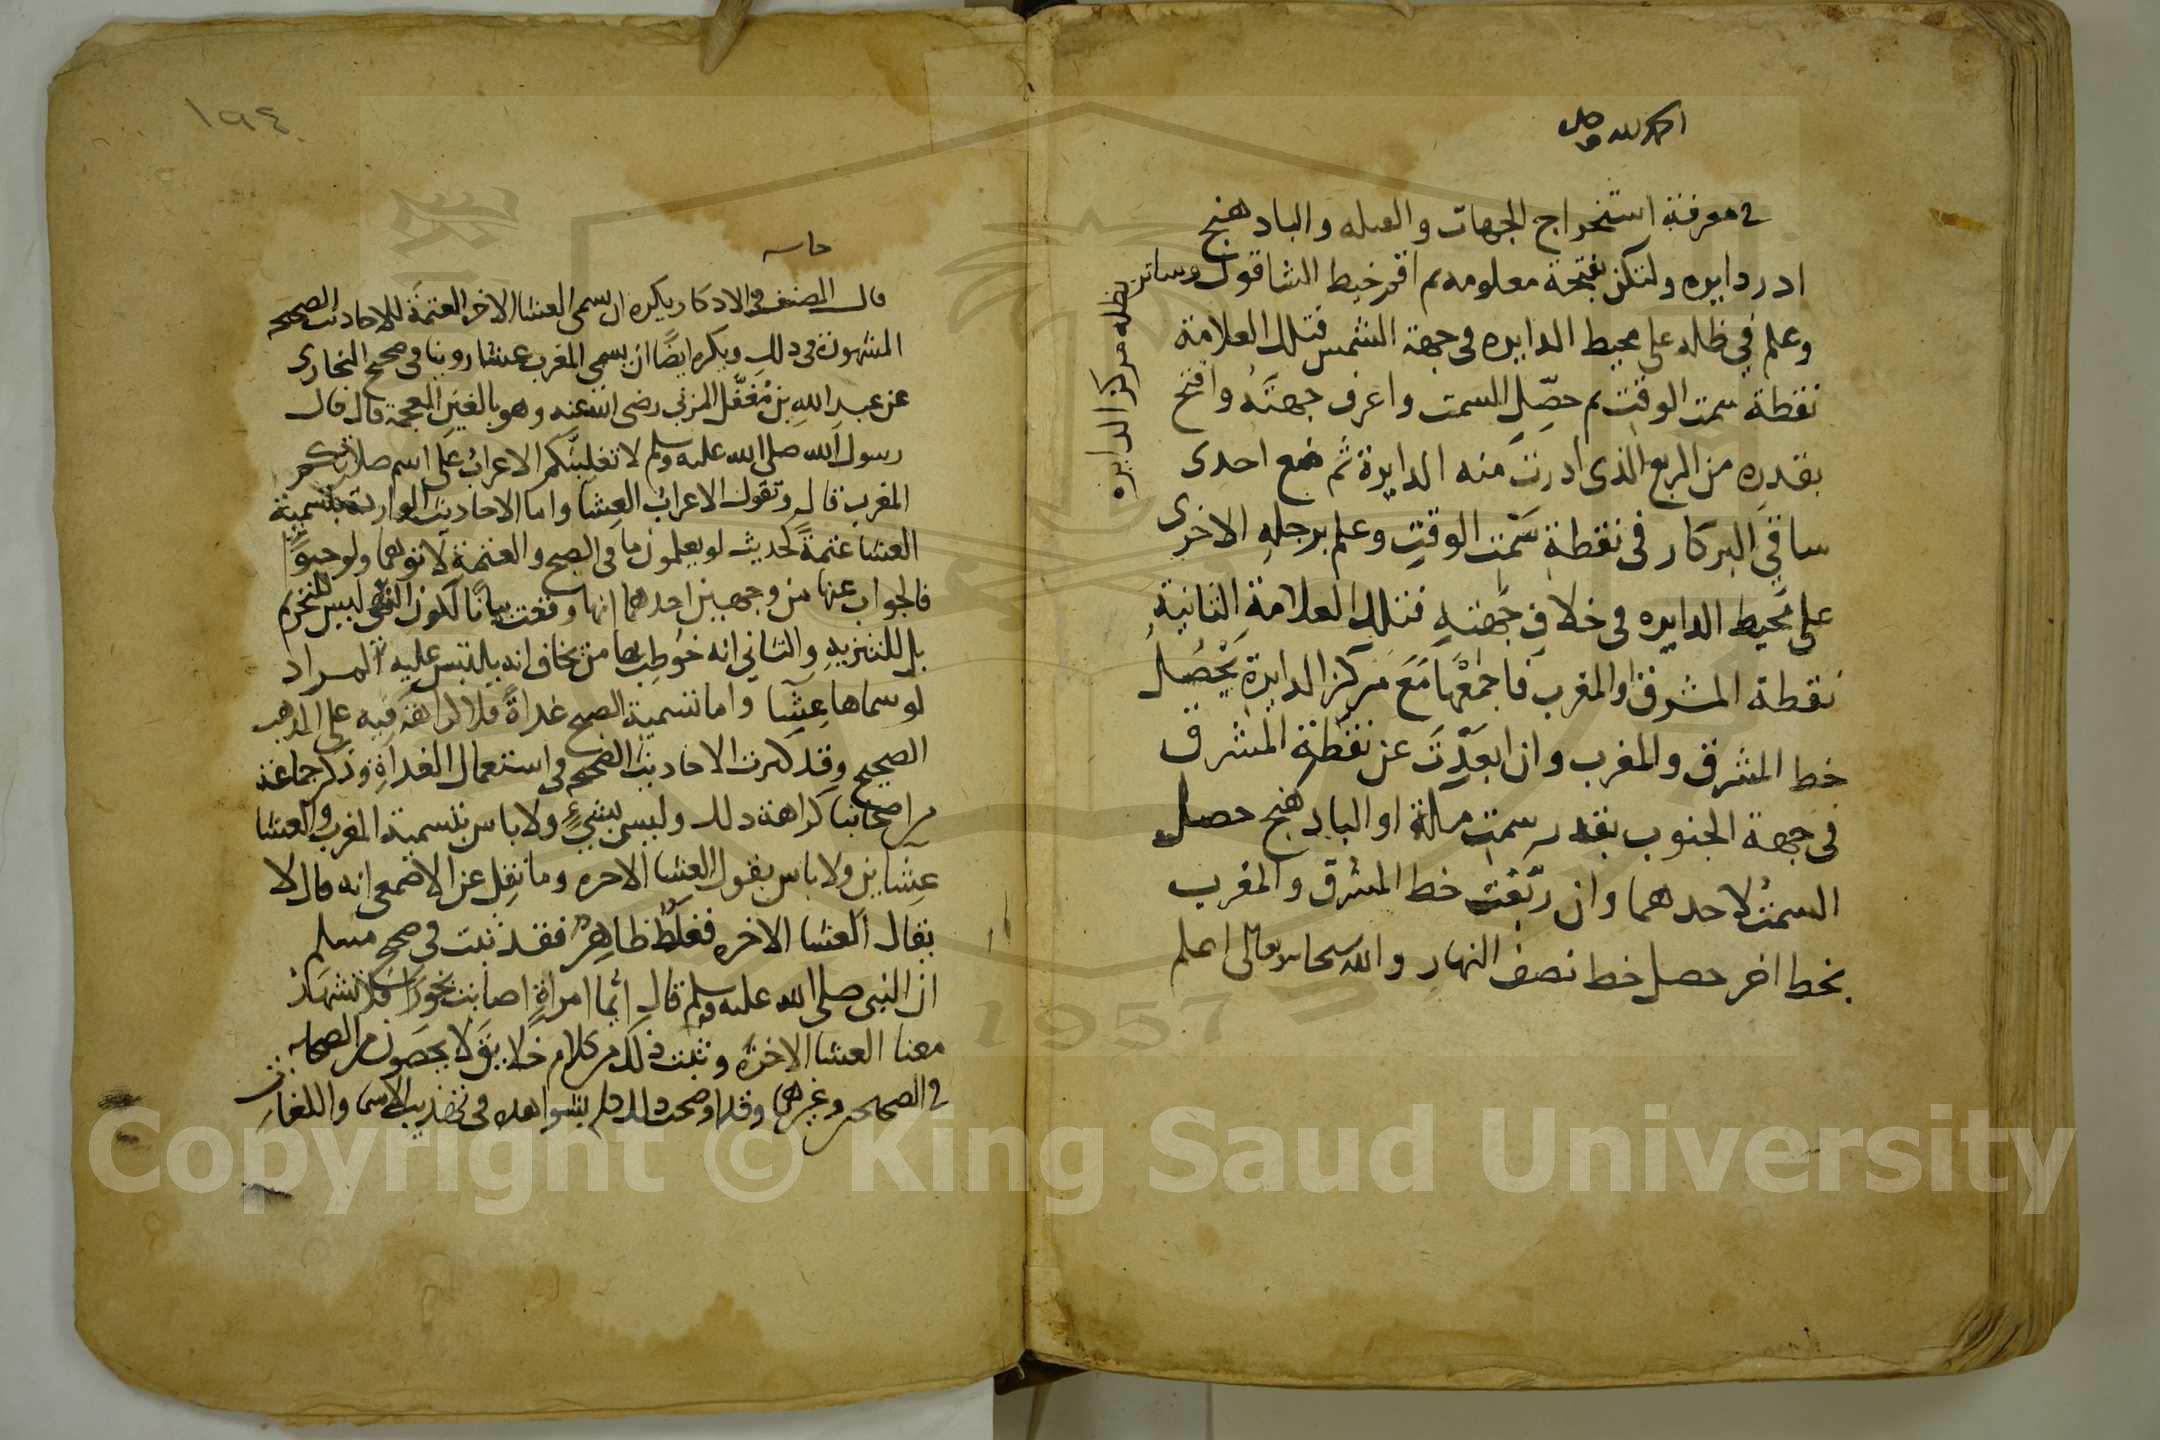 الحمد لله وصل
في معرفة استخراج الجهات والقبله والبادهنج
ادر دايره ولتكن بفتحة معلومه ثم اقم خيط الشاقول وساتر
بظله مركز الدايره
وعلم في ظله على محيط الدايره في جهة الشمس فتلك العلامة
نقطة سمت الوقت ثم حصّل السمت واعرف جهته وافتح
بقدره من الربع الذى ادرت منه الدايرة ثم ضع احدى
ساقي البركار في نقطة سمت الوقت وعلم برجله الاخرى
على محيط الدايره في خلاف جهته فتلك العلامة الثانية
نقطة المشرق او المغرب فاجمعها مع مركز الدايرة يحصل
خط المشرق والمغرب وان ابعدت عن نقطة المشرق
في جهة الجنوب بقدر سمت مكة او البادهنج حصل
السمت لاحدهما وان ربّعت خط المشرق والمغرب
بخط اخر حصل خط نصف النهار والله سبحانه وتعالى اعلم
١٩٤
حاشيه
قال المصنف في الاذكار يكره ان يسمى العشا الاخر العتمة للاحاديث الصحيحه
المشهورة في ذلك ويكره ايضًا ان يسمى المغرب عشا روينا في صحيح البخارى
عن عبد الله بن مُغفَّل المزني رضى الله عنه وهو بالغين المعجمة قال قال
رسول الله صلى الله عليه وسلم لا تغلبنّكم الاعراب على اسم صلاتكم
المغرب قال وتقول الاعراب العشا واما الاحاديث الوارده بتسمية
العشا عتمةً كحديث لو يعلمون ما في الصبح والعتمة لاتوهما ولو حبوًا
فالجواب عنها من وجهين احدهما انها وقعت بيانًا لكون النهى ليس للتحريم
بل للتنزيه والثاني انه خوطب بها من يخاف انه يلتبس عليه المراد
لو سماها عِشا واما تسمية الصبح غداةً فلا كراهة فيه على المذهب
الصحيح وقد كثرت الاحاديث الصحيحه في استعمال الغداة وذكر جماعة
من اصحابنا كراهة ذلك وليس بشيءٍ ولا باس بتسمية المغرب والعشا
عِشاين ولا باس بقول العشا الاخره وما نقل عن الاصمعى انه قال لا
يقال العشا الاخره فغلطٌ ظاهرٌ فقد ثبت في صحيح مسلم
ان النبى صلى الله عليه وسلم قال ايّما امراةٍ اصابت بخورًا فلا تشهد
معنا العشا الاخرة وثبت ذلك من كلام خلايق لا يحصون من الصحابه
في الصحيحين وغيرهما وقد اوضحت ذلك كله بشواهده في تهذيب الاسما واللغات
1957
Copyright © King Saud University